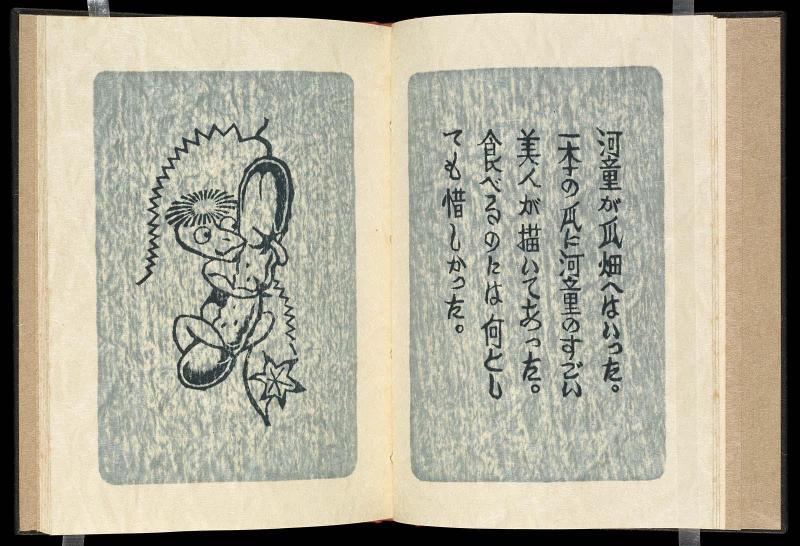 河童が瓜畑へはいった。
一本の瓜に河童のすごい
美人が描いてあった。
食べるのには何とし
ても惜しかった。